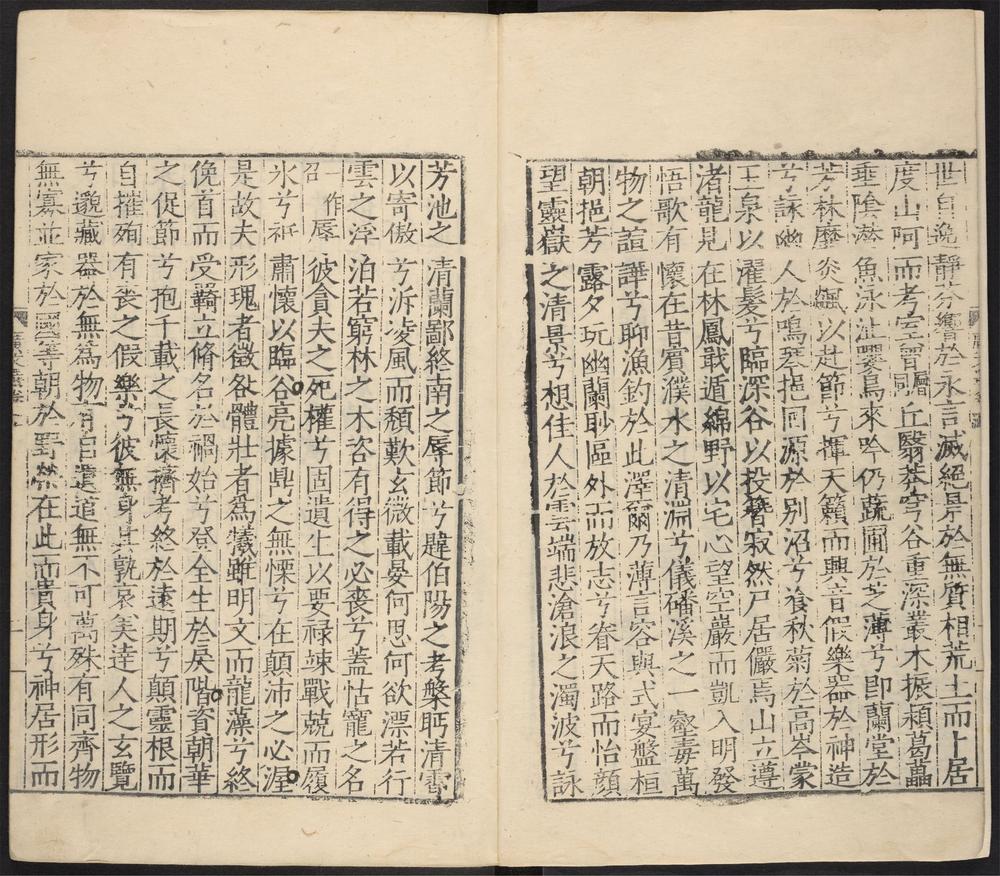 世自逸靜芬響於永言滅絕景於無質相荒土而卜居
度山阿而考室曾丘翳薈穹谷重深叢木振潁葛藟
垂陰潛魚泳沚嚶鳥來吟仍蔬圃於芝薄兮即蘭堂於
芳林靡炎飈以赴節兮揮天籟而興音假樂器於神造
兮詠幽人於鳴琴挹回源於別沼兮飡秋菊於高岑蒙
玉泉以濯髮兮臨深谷以投簪寂然尸居儼焉山立遵
渚龍見在林鳳戢遁綿野以宅心望空巖而凱入明發
悟歌有懷在昔賓濮水之清淵兮儀磻溪之一壑毒萬
物之諠譁兮聊漁釣於此澤爾乃薄言容與式宴盤桓
朝挹芳露夕玩幽蘭眇區外而放志兮眷天路而怡顏
望靈嶽之清景兮想佳人於雲端悲滄浪之濁波兮詠
芳池之清瀾鄙終南之辱節兮韙伯陽之考槃眄清霄
以寄傲兮泝凌風而頹歎玄微載晏何思何欲漂若行
雲之浮泊若窮林之木咨有得之必喪兮蓋怙寵之名
一作辱召彼貪夫之死權兮固遺生以要祿竦戰兢而履
氷兮祗肅懷以臨谷亮據鼎之無慄兮在顛沛之必渥
是故夫形瑰者徵咎體壯者爲犧雖明文而龍藻兮終
俛首而受羈立脩名於禍始兮登全生於戾階資朝華
之促節兮抱千載之長懷擠考終於遠期兮顛靈根而
自摧殉有喪之假樂兮彼無身其孰哀美達人之玄覽
兮邈藏器於無爲物有自遺道無不可萬殊有同齊物
無寡並家於國等朝於野榮在此而貴身兮神居形而